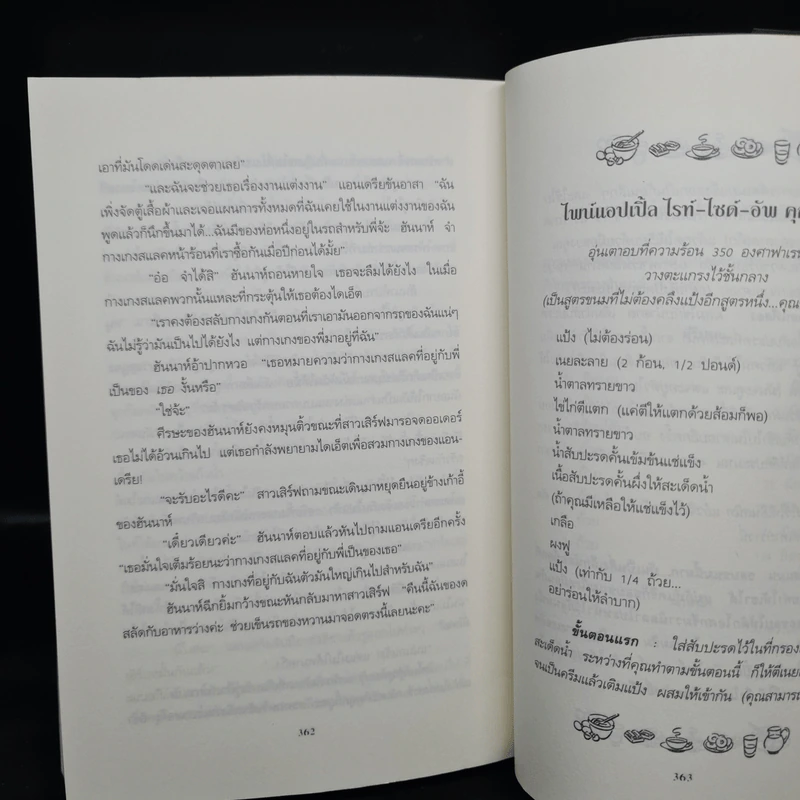 เอาที่มันโดดเด่นสะดุดตาเลย"
"และฉันจะช่วยเธอเรื่องงานแต่งงาน" แอนเดรียขันอาสา "ฉัน
เพิ่งจัดตู้เสื้อผ้าและเจอแผนการทั้งหมดที่ฉันเคยใช้ในงานแต่งงานของฉัน
พูดแล้วก็นึกขึ้นมาได้...ฉันมีของห่อหนึ่งอยู่ในรถสำหรับพี่จ้ะ ฮันนาห์ จำ
กางเกงสแลคหน้าร้อนที่เราซื้อกันเมื่อปีก่อนได้มั้ย"
"อ๋อ จำได้สิ" ฮันนาห์ถอนหายใจ เธอจะลืมได้ยังไง ในเมื่อ
กางเกงสแลคพวกนั้นแหละที่กระตุ้นให้เธอต้องไดเอ็ต
"เราคงต้องสลับกางเกงกันตอนที่เราเอามันออกจากรถของฉันแน่ๆ
ฉันไม่รู้ว่ามันเป็นไปได้ยังไง แต่กางเกงของพี่มาอยู่ที่ฉัน"
ฮันนาห์อ้าปากหวอ "เธอหมายความว่ากางเกงสแลคที่อยู่กับพี่
เป็นของ เธอ งั้นหรือ"
"ใช่จ้ะ"
ศีรษะของฮันนาห์ยังคงหมุนติ้วขณะที่สาวเสิร์ฟมารอจดออเดอร์
เธอไม่ได้อ้วนเกินไป แต่เธอกำลังพยายามไดเอ็ตเพื่อสวมกางเกงของแอน-
เดรีย!
"จะรับอะไรดีคะ" สาวเสิร์ฟถามขณะเดินมาหยุดยืนอยู่ข้างเก้าอี้
ของฮันนาห์
"เดี๋ยวเดียวค่ะ" ฮันนาห์ตอบแล้วหันไปถามแอนเดรียอีกครั้ง
"เธอมั่นใจเต็มร้อยนะว่ากางเกงสแลคที่อยู่กับพี่เป็นของเธอ"
"มั่นใจสิ กางเกงที่อยู่กับฉันตัวมันใหญ่เกินไปสำหรับฉัน"
ฮันนาห์ฉีกยิ้มกว้างขณะหันกลับมาหาสาวเสิร์ฟ "คืนนี้ฉันของด
สลัดกับอาหารว่างค่ะ ช่วยเข็นรถของหวานมาจอดตรงนี้เลยนะคะ"
362
ไพน์แอปเปิ้ล ไรท์-ไซด์-อัพ
อุ่นเตาอบที่ความร้อน 350 องศาฟาเรน
วางตะแกรงไว้ชั้นกลาง
(เป็นสูตรขนมที่ไม่ต้องคลึงแป้งอีกสูตรหนึ่ง...คุณ
แป้ง (ไม่ต้องร่อน)
เนยละลาย (2 ก้อน, 1/2 ปอนด์)
น้ำตาลทรายขาว
ไข่ไก่ตีแตก (แค่ตีให้แตกด้วยส้อมก็พอ)
น้ำตาลทรายขาว
น้ำสับปะรดคั้นเข้มข้นแช่แข็ง
เนื้อสับปะรดคั้นผึ่งให้สะเด็ดน้ำ
(ถ้าคุณมีเหลือให้แช่แข็งไว้)
เกลือ
ผงฟู
แป้ง (เท่ากับ 1/4 ถ้วย...
อย่าร่อนให้ลำบาก)
ขั้นตอนแรก : ใส่สับปะรดไว้ในที่กรอง
สะเด็ดน้ำ ระหว่างที่คุณทำตามขั้นตอนนี้ ก็ให้ตีเนย
จนเป็นครีมแล้วเติมแป้ง ผสมให้เข้ากัน (คุณสามารถ
363